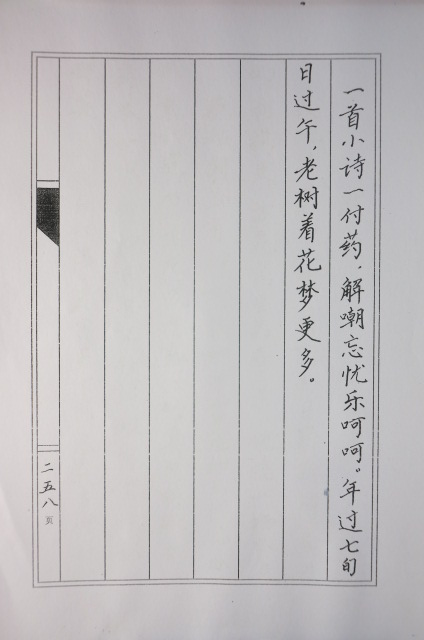 一首小诗一付药，解嘲忘忧乐呵呵。年过七旬
日过午，老树着花梦更多。
二五八页